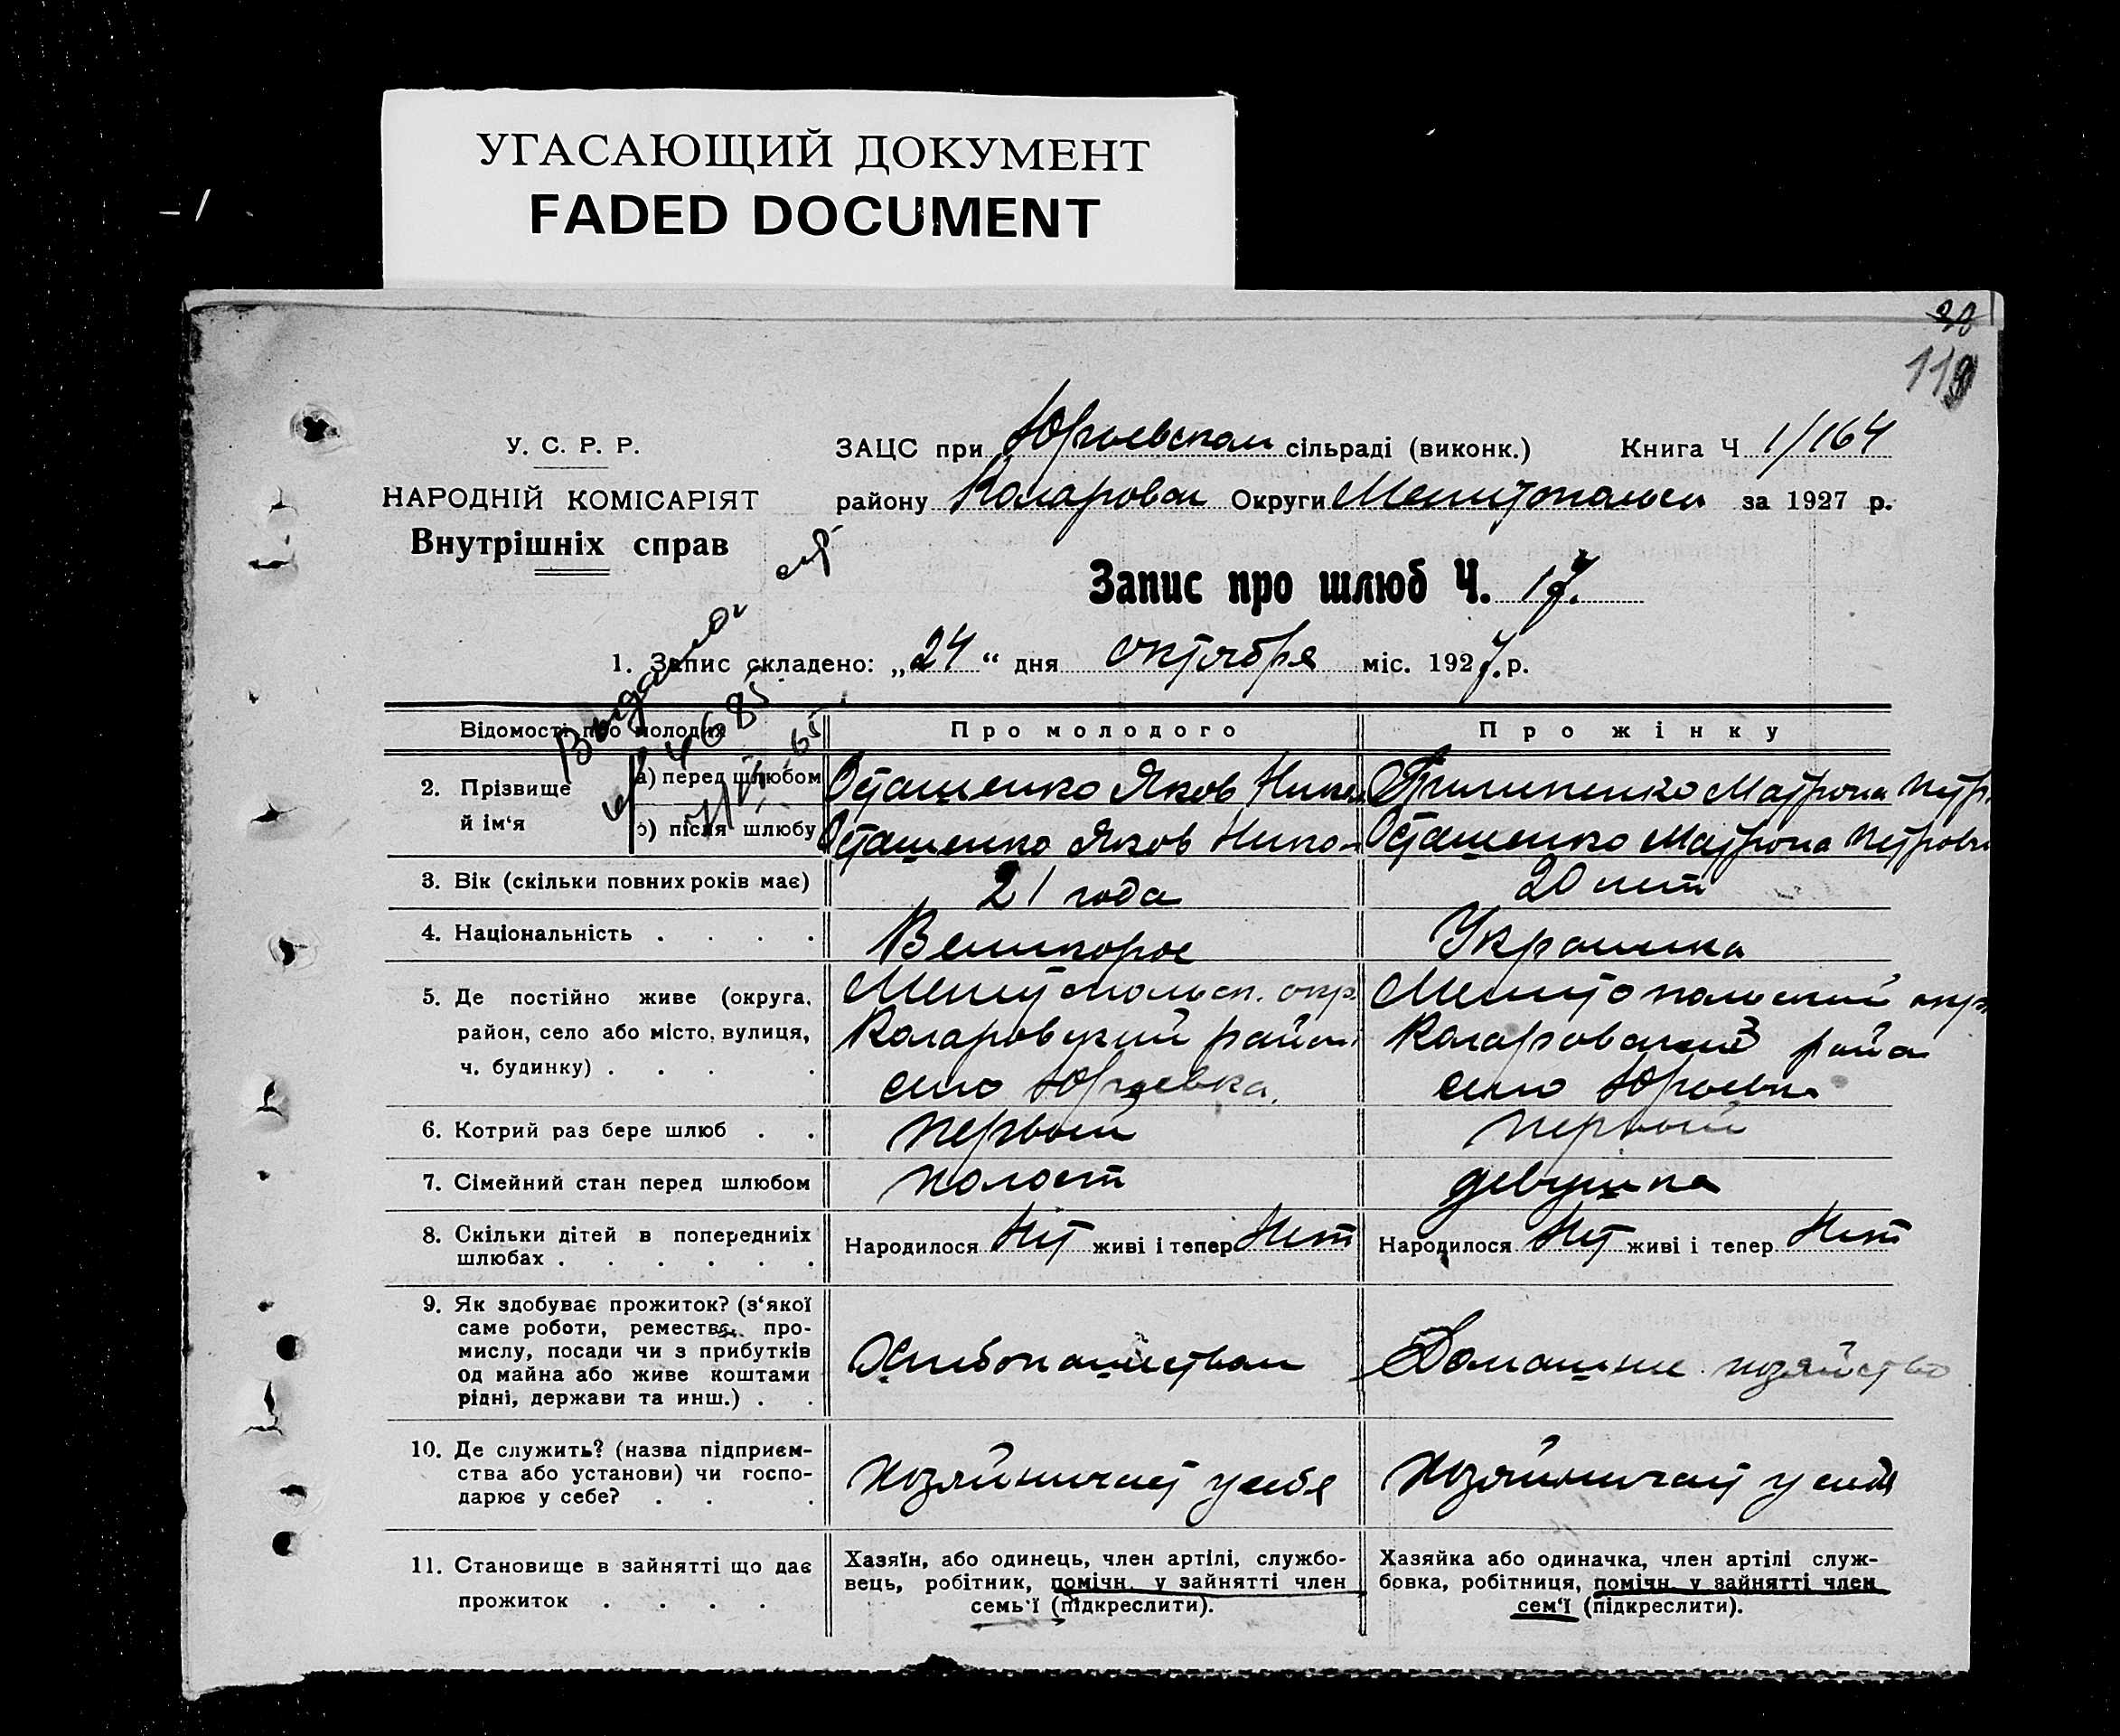 УГАСАЮЩИЙ ДОКУМЕНТ
FADED DOCUMENT
119
У. С. Р. Р.
НАРОДНІЙ КОМІСАРІЯТ
Внутрішніх справ
ЗАЦС при Юрьевском сільраді (виконк.) Книга Ч 1/164
району Коларовск Округи Мелитопольск за 1927 р.
Запис про шлюб Ч. 17.
1. Запис складено: „24“ дня октября міс. 1927. р.
Відомості про молодих
Про молодого
Про жінку
2. Прізвище й ім‘я
а) перед шлюбом
Осташенко Яков Никол
Матрона Петр.
б) після шлюбу
Осташенко Яков Нико
Осташенко Матрона Петровн
3. Вік (скільки повних років має)
21 года
20 лет
4. Національність . . . .
Великорос
Украинка
5. Де постійно живе (округа,
район, село або місто, вулиця,
ч. будинку) . . . .
Мелитопольск. окр.
Коларовский район
село Юрьевка.
Мелитопольский окр
Коларовский райо
село Юрьевка
6. Котрий раз бере шлюб . .
первый
первый
7. Сімейний стан перед шлюбом
холост
девушка
8. Скільки дітей в попередниіх
шлюбах . . . . . .
Народилося Нет живі і тепер Нет
Народилося Нет живі і тепер Нет
9. Як здобуває прожиток? (з‘якої
саме роботи, ремества, про-
мислу, посади чи з прибутків
од майна або живе коштами
рідні, держави та инш.) . .
Хлебопашеством
Домашне хозяйство
10. Де служить? (назва підприєм-
ства або установи) чи госпо-
дарює у себе? . . .
хозяйничает у себя
хозяйничает у себя
11. Становище в зайнятті що дає
прожиток . . . .
Хазяїн, або одинець, член артілі, службо-
вець, робітник, помічн. у зайнятті член
семь‘ї (підкреслити).
Хазяйка або одиначка, член артілі служ-
бовка, робітниця, помічн. у зайнятті член
сем‘ї (підкреслити).